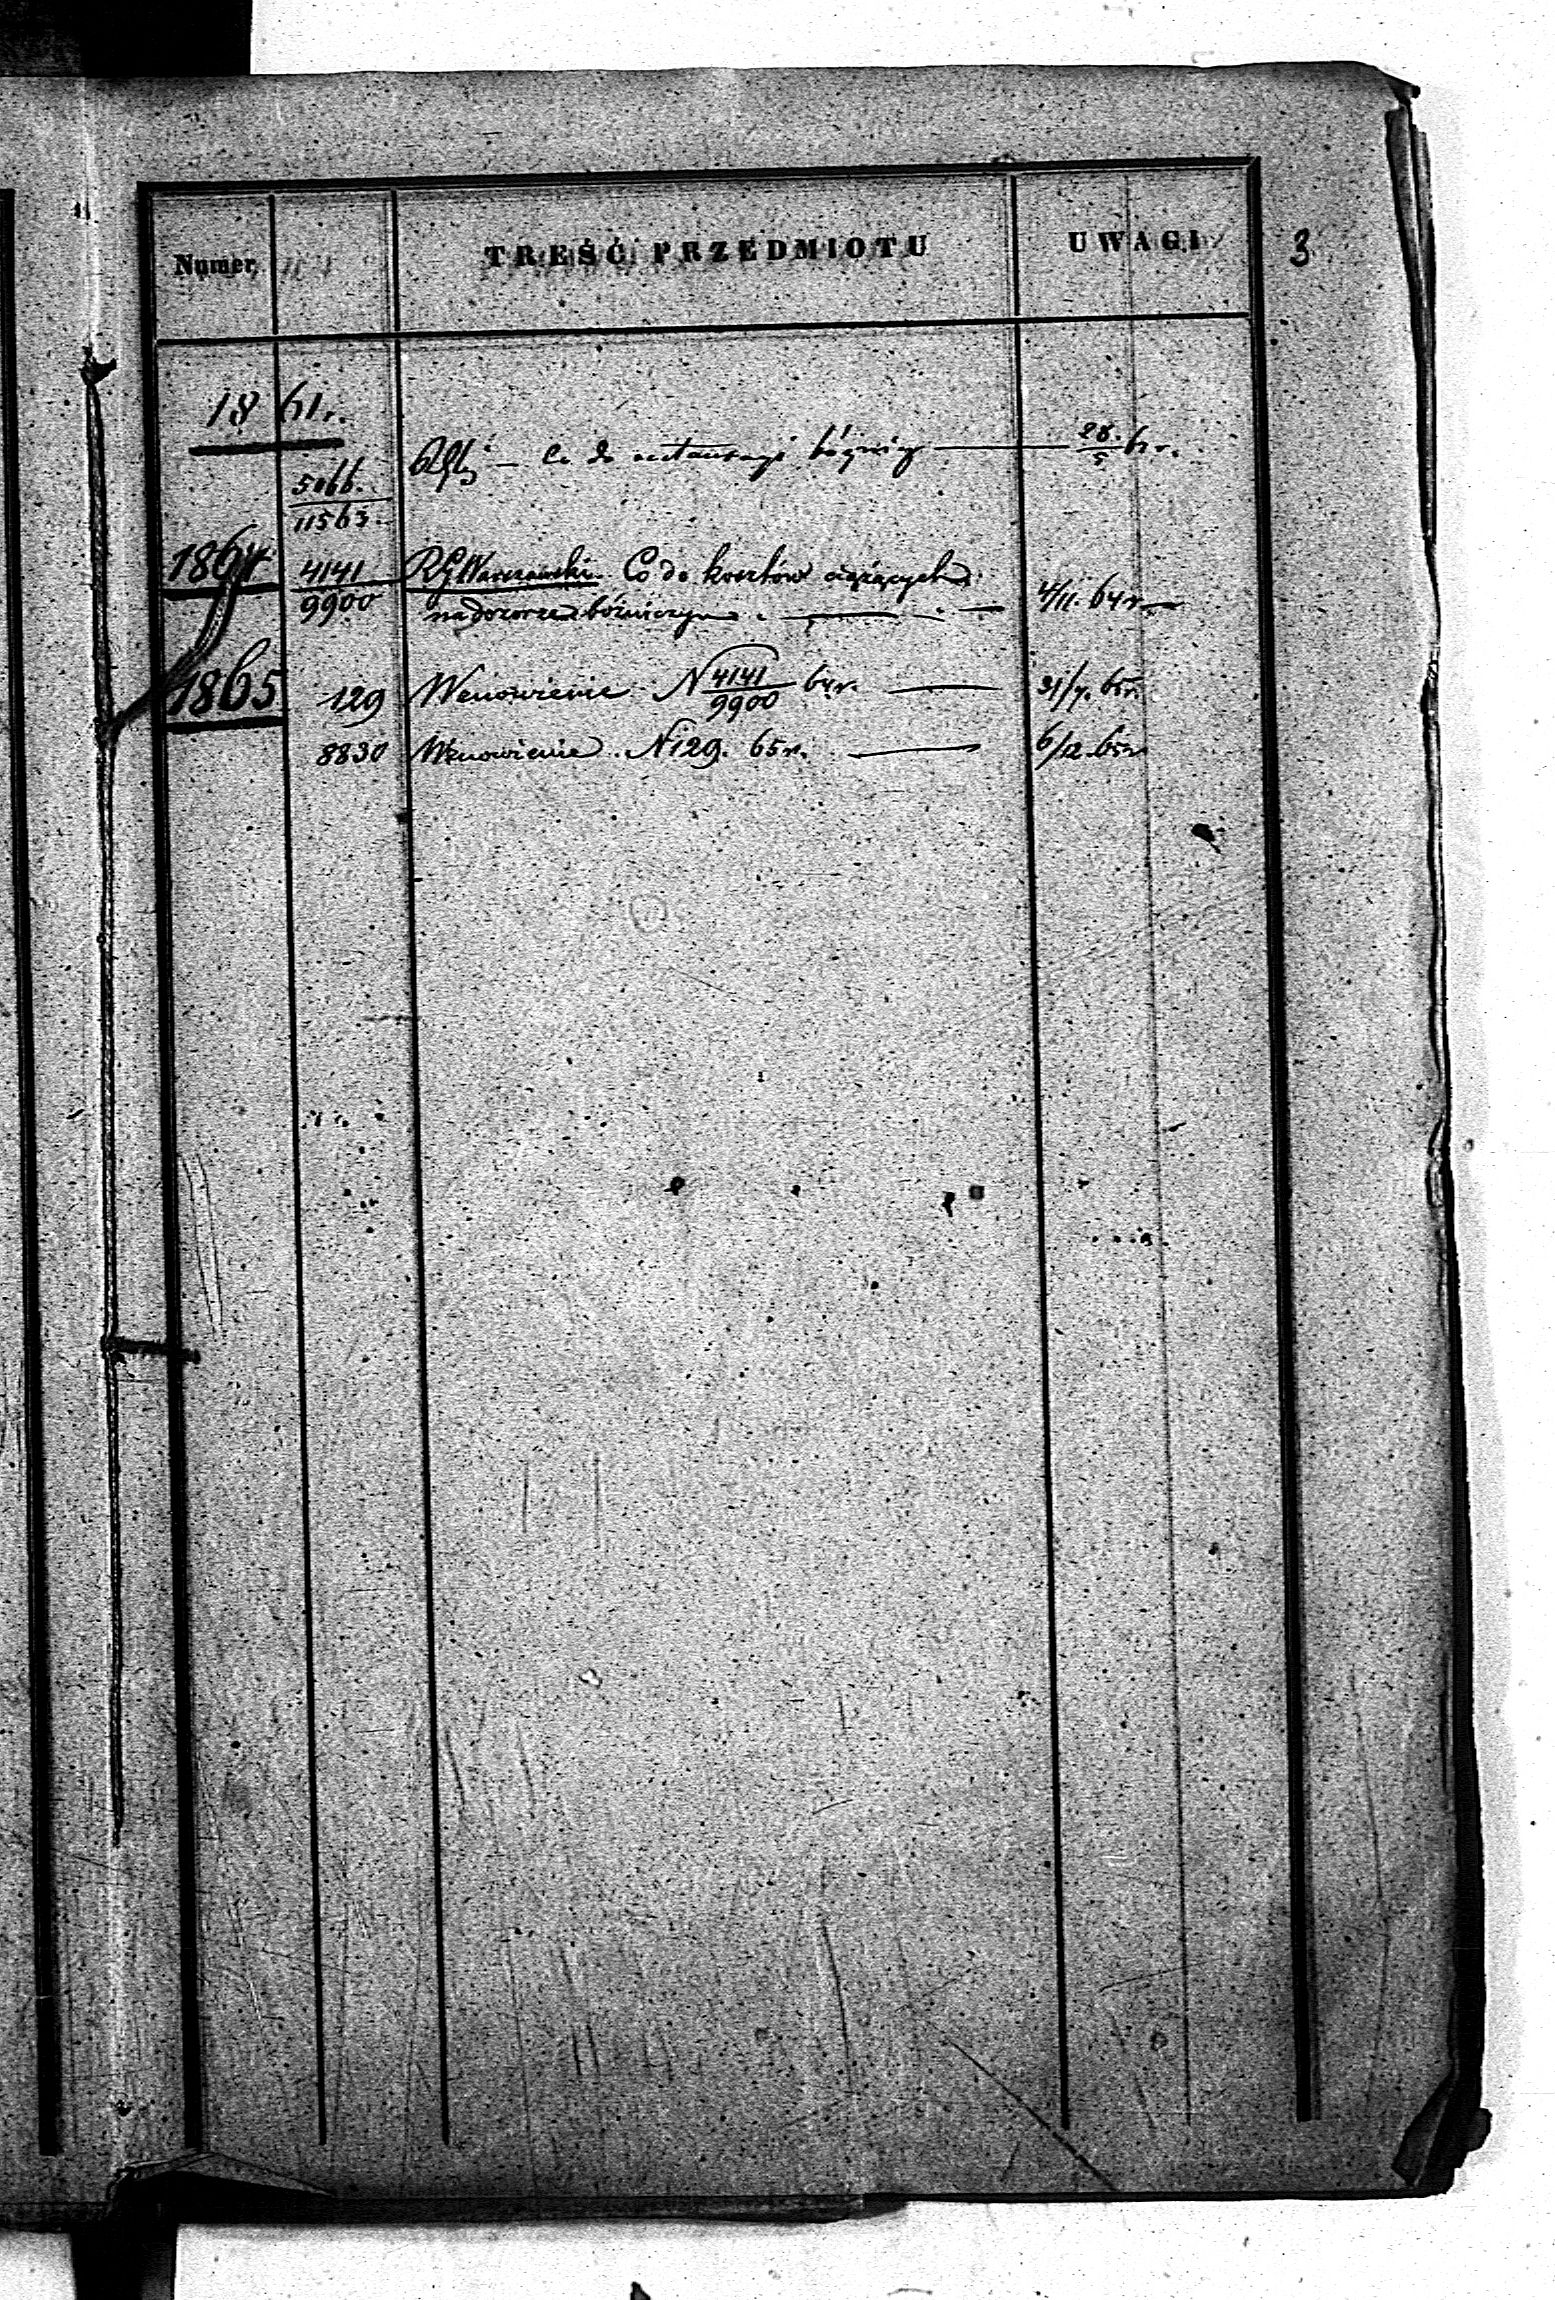 Numer
TREŚĆ PRZEDMIOTU
UWAGI
3
1861r.
Co do restauracyi bóżnicy 28/5 61 r.
5066/11563
1864 4141/9900 RG Warszawski. Co do kosztów ciążących
na dozorze bóżniczym 4/11. 64r
1865 129 Wznowienie N 4141/9900 64r. 31/7. 65r.
8830 Wznowienie N 129. 65r. 6/12. 65r